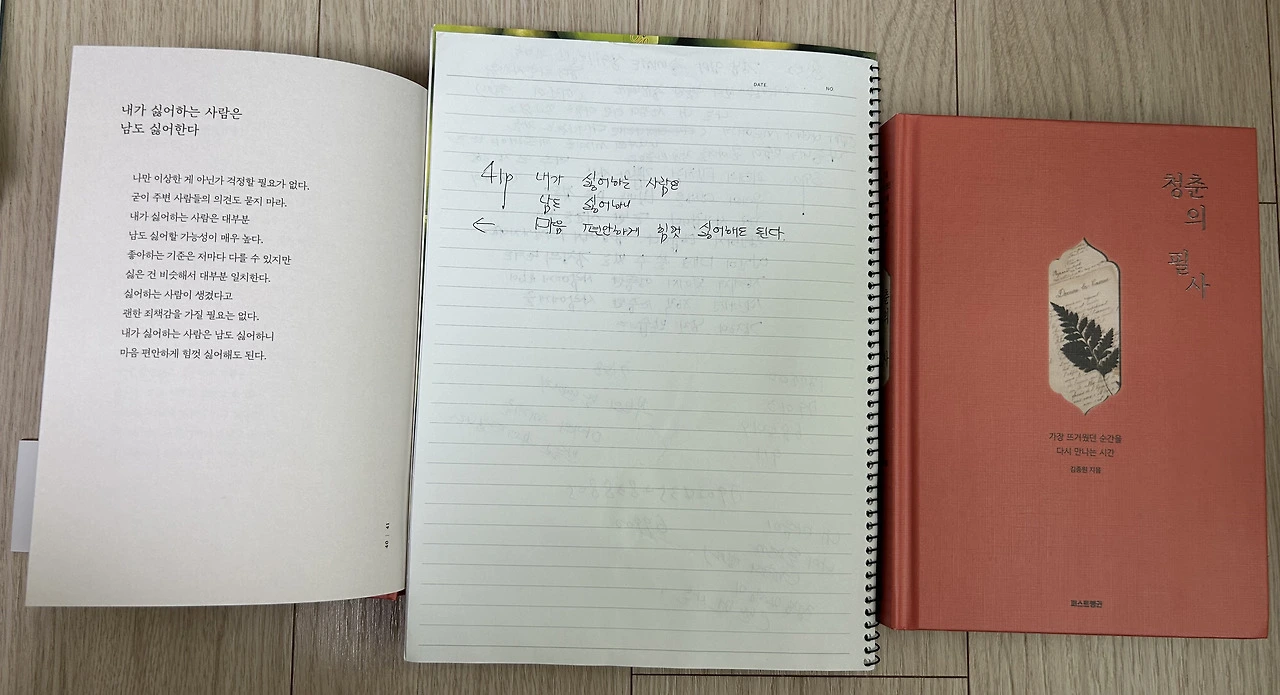 내가 싫어하는 사람은
남도 싫어한다
나만 이상한 게 아닌가 걱정할 필요가 없다.
굳이 주변 사람들의 의견도 묻지 마라.
내가 싫어하는 사람은 대부분
남도 싫어할 가능성이 매우 높다.
좋아하는 기준은 저마다 다를 수 있지만
싫은 건 비슷해서 대부분 일치한다.
싫어하는 사람이 생겼다고
괜한 죄책감을 가질 필요는 없다.
내가 싫어하는 사람은 남도 싫어하니
마음 편안하게 힘껏 싫어해도 된다.
40 | 41
DATE.
NO.
41p 내가 싫어하는 사람은
남도 싫어해
← 마음 편안하게 힘껏 싫어해도 된다.
청춘
의
필
사
가장 뜨거웠던 순간을
다시 만나는 시간
김종원 지음
퍼스트펭귄